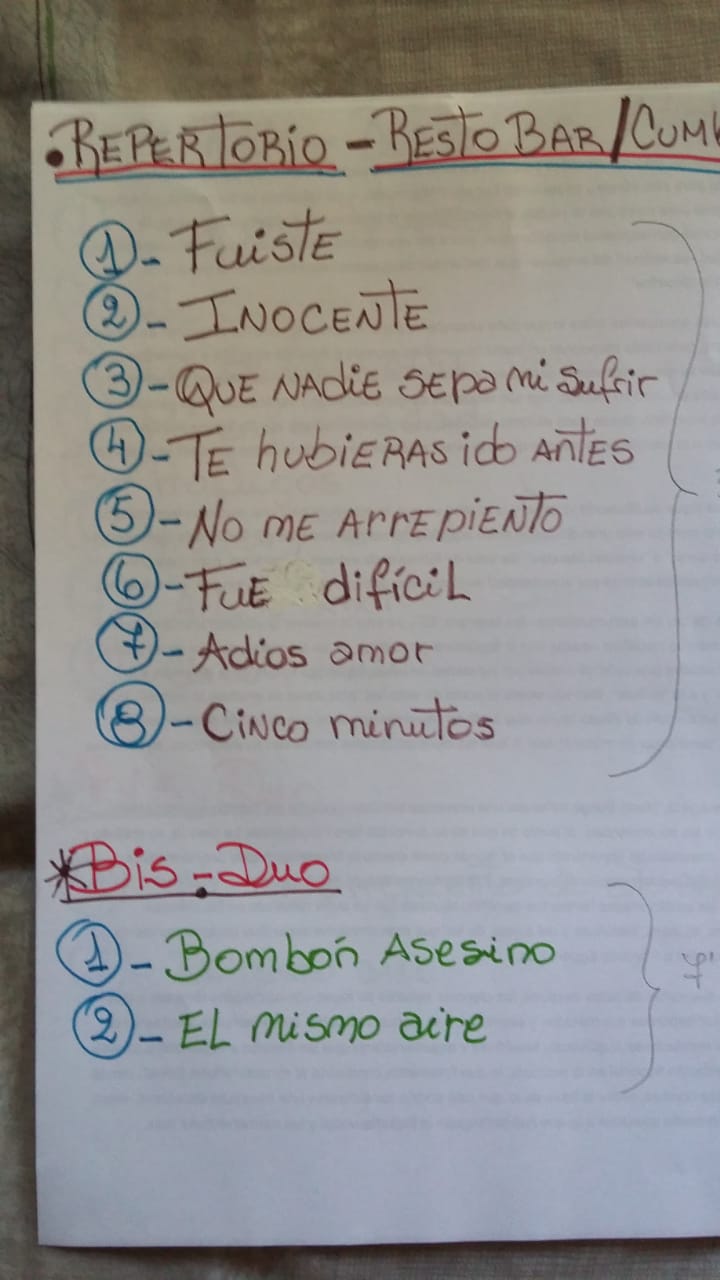 • REPERTORIO - RESTO BAR/CUM
1- FuisTE
2- INOCENTE
3- QUE NADiE SEPA mi Sufrir
4- TE hubiERAS ido ANTES
5- NO ME ARrEPIENTO
6- FUE difícil
7- Adios amor
8- CiNco minutos
*Bis - Duo
1- Bombón Asesino
2- EL mismo aire